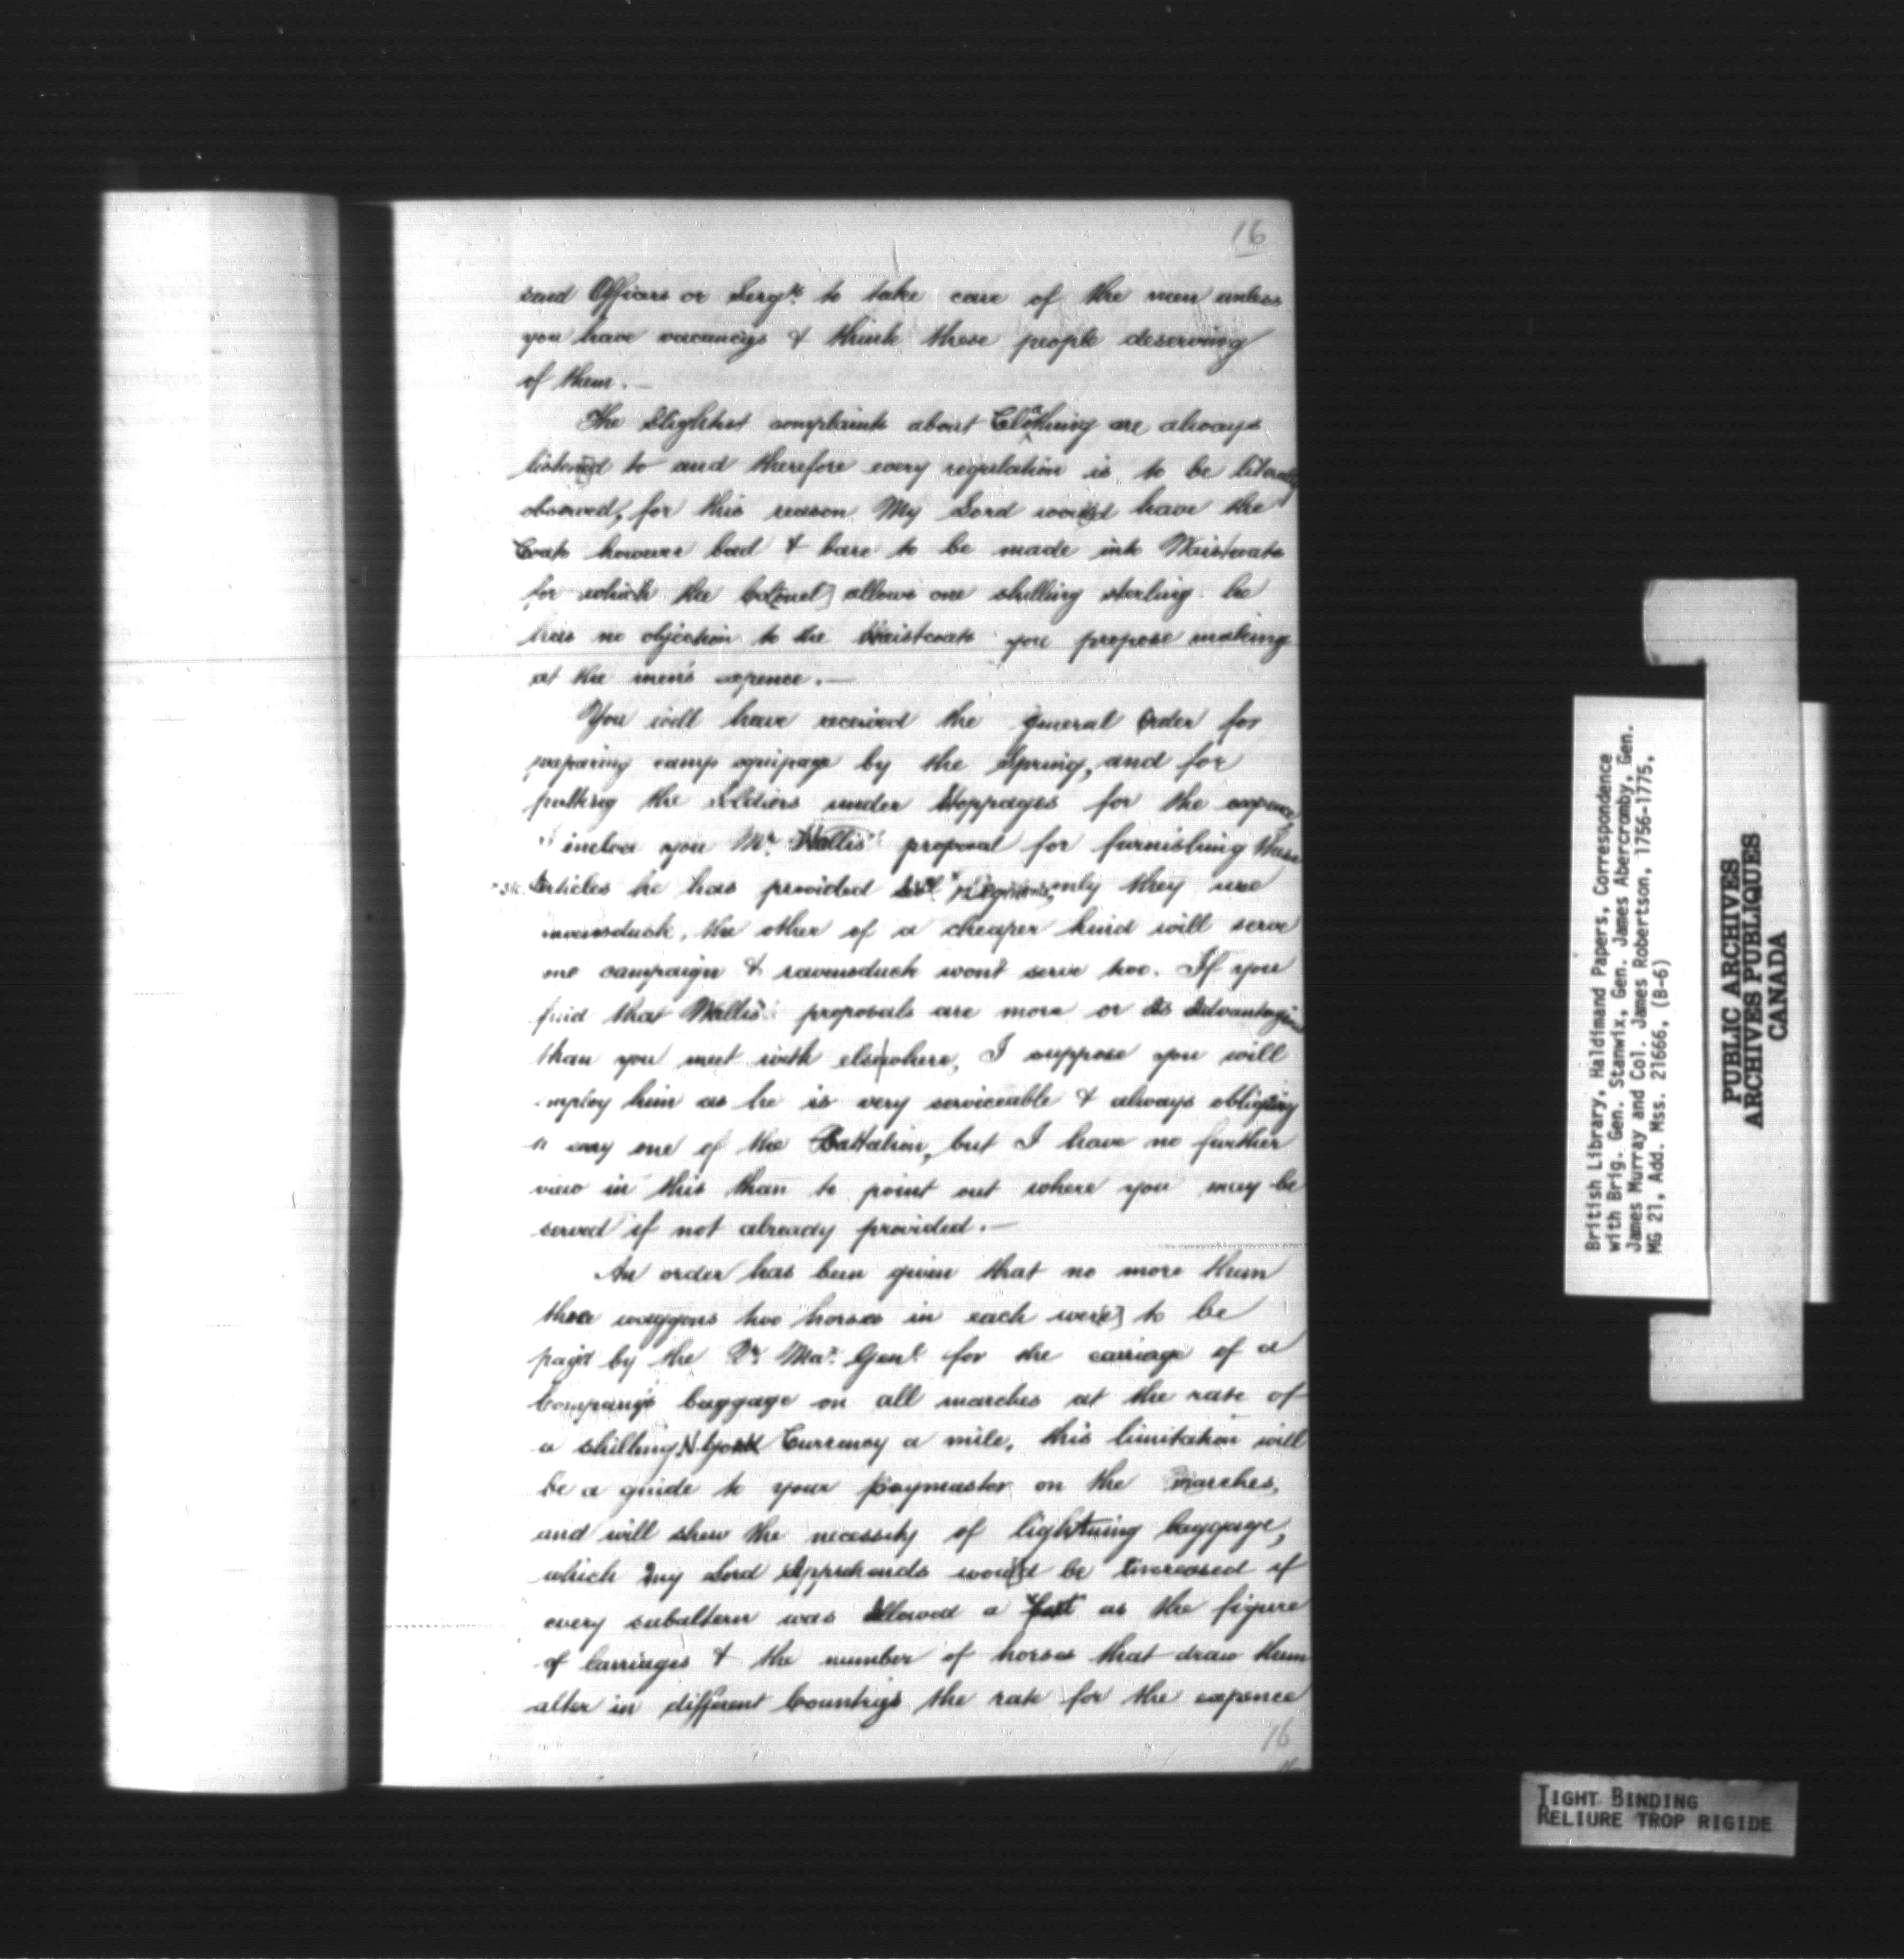 16
send Officers or Sergts. to take care of the men unless
you have vacancys & think these people deserving
of them.—
The Slightest complaints about Cloathing are always
listened to and therefore every regulation is to be literally
observed, for this reason My Lord would have the
Coats however bad & bare to be made into Waistcoats
for which the Colonel allows one shilling sterling. he
has no objection to the Waistcoats you propose making
at the men's expence.—
You will have received the general Order for
preparing camp equipage by the Spring, and for
putting the Soldiers under Stoppages for the expence,
inclose you Mr. Wallis' proposal for furnishing these
Articles he has provided only they use
ravensduck, the other of a cheaper kind will serve
one campaign & ravensduck wont serve two. If you
find that Wallis' proposals are more or
than you meet with elsewhere, I suppose you will
employ him as he is very serviceable & always obliging
to any one of the Battalion, but I have no further
view in this than to point out where you may be
served if not already provided.—
An order has been given that no more than
three waggons two horses in each were to be
payd by the Qr. Mar. Genl. for the carriage of a
Company's baggage on all marches at the rate of
a shilling N. York Currency a mile, this limitation will
be a guide to your paymaster on the marches,
and will shew the necessity of lightning baggage,
which my Lord Apprehends would be Increased if
every subaltern was Allowed a as the figure
of Carriages & the number of horses that draw them
alter in different Countrys the rate for the expence
16
British Library, Haldimand Papers, Correspondence
with Brig. Gen. Stanwix, Gen. James Abercromby, Gen.
James Murray and Col. James Robertson, 1756-1775,
MG 21, Add. Mss. 21666, (B-6)
PUBLIC ARCHIVES
ARCHIVES PUBLIQUES
CANADA
TIGHT BINDING
RELIURE TROP RIGIDE